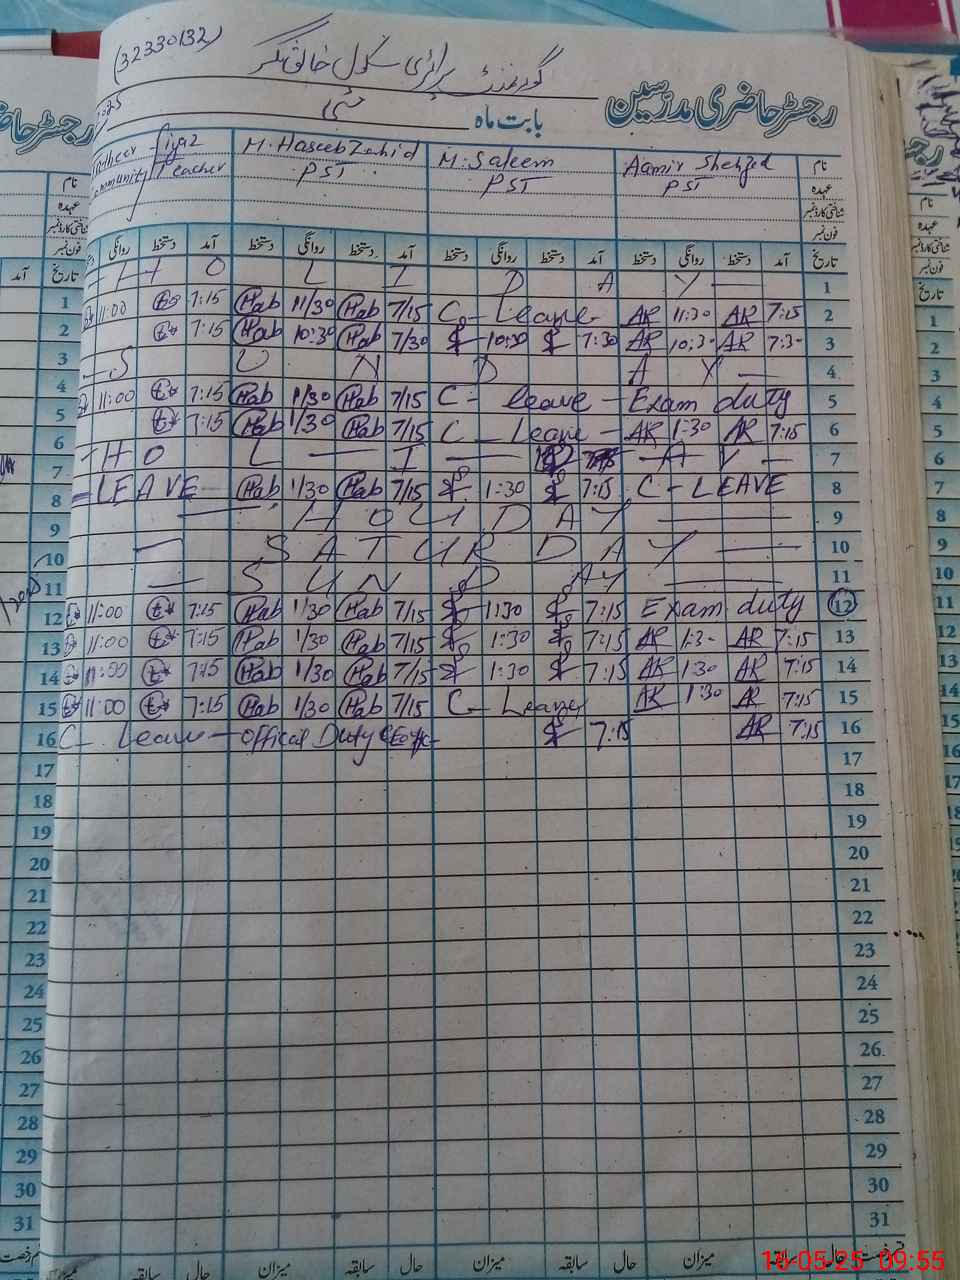 (32330132)
گورنمنٹ پرائمری سکول خالق نگر
رجسٹر حاضری مدرسین
بابت ماہ مئی
نام Aamir Shehzad M. Saleem M. Haseeb Zahid Fiyaz
عہدہ PST PST PST Community Teacher
شناختی کارڈ نمبر
فون نمبر
تاریخ آمد دستخط روانگی دستخط آمد دستخط روانگی دستخط آمد دستخط روانگی دستخط آمد دستخط روانگی
— H O L I D A Y — 1
11:00 7:15 Hab 11/30 Hab 7/15 C- Leave AR 11:30 AR 7:15 2
7:15 Hab 10:30 Hab 7/30 10:30 7:30 AR 10:30 AR 7:30 3
— S U N D A Y — 4
11:00 7:15 Hab 1/30 Hab 7/15 C- leave - Exam duty 5
7:15 Hab 1/30 Hab 7/15 C - Leave - AR 1:30 AR 7:15 6
- H O L — I — D A Y - 7
= LEAVE Hab 1/30 Hab 7/15 1:30 7:15 C - LEAVE 8
— HOLIDAY — 9
— SATURDAY — 10
— SUNDAY — 11
11:00 7:15 Hab 1/30 Hab 7/15 1:30 7:15 Exam duty 12
11:00 7:15 Hab 1/30 Hab 7/15 1:30 7:15 AR 1:30 AR 7:15 13
11:00 7:15 Hab 1/30 Hab 7/15 1:30 7:15 AR 1:30 AR 7:15 14
11:00 7:15 Hab 1/30 Hab 7/15 C- Leave AR 1:30 AR 7:15 15
C- Leave - Offical Duty 7:15 AR 7:15 16
17
18
19
20
21
22
23
24
25
26
27
28
29
30
31
حال سابقہ میزان حال سابقہ میزان حال سابقہ میزان حال سابقہ
16-05-25 09:55